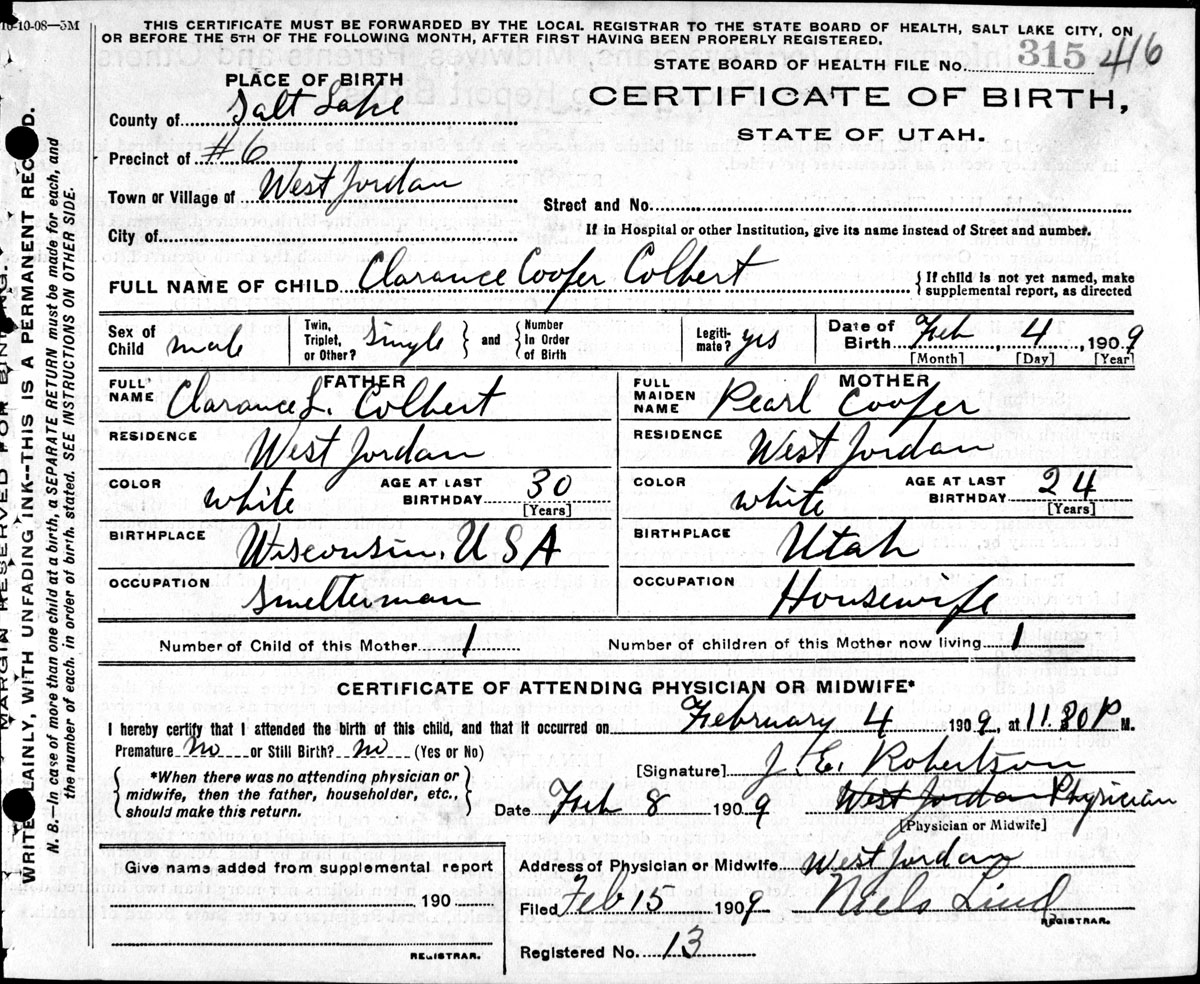 10-10-08—5M
THIS CERTIFICATE MUST BE FORWARDED BY THE LOCAL REGISTRAR TO THE STATE BOARD OF HEALTH, SALT LAKE CITY, ON
OR BEFORE THE 5TH OF THE FOLLOWING MONTH, AFTER FIRST HAVING BEEN PROPERLY REGISTERED.
STATE BOARD OF HEALTH FILE No. 315 416
PLACE OF BIRTH
CERTIFICATE OF BIRTH,
STATE OF UTAH.
County of Salt Lake
Precinct of #6
Town or Village of West Jordan
Street and No.
City of
If in Hospital or other Institution, give its name instead of Street and number.
FULL NAME OF CHILD Clarance Coofer Colbert
{If child is not yet named, make
supplemental report, as directed
Sex of Child male
Twin, Triplet, or Other? Single } and { Number In Order of Birth
Legiti-mate? yes
Date of Birth Feb 4, 1909
[Month] [Day] [Year]
FATHER
FULL NAME Clarance L. Colbert
RESIDENCE West Jordan
COLOR white AGE AT LAST BIRTHDAY 30
[Years]
BIRTHPLACE Wisconsin, U S A
OCCUPATION Smelterman
MOTHER
FULL MAIDEN NAME Pearl Coofer
RESIDENCE West Jordan
COLOR white AGE AT LAST BIRTHDAY 24
[Years]
BIRTHPLACE Utah
OCCUPATION Housewife
Number of Child of this Mother 1 Number of children of this Mother now living 1
CERTIFICATE OF ATTENDING PHYSICIAN OR MIDWIFE*
I hereby certify that I attended the birth of this child, and that it occurred on February 4 1909, at 11.30 P M.
Premature no or Still Birth? no (Yes or No)
*When there was no attending physician or
midwife, then the father, householder, etc.,
should make this return.
[Signature] J. E. Robertson
Date Feb 8 1909 West Jordan Physician
[Physician or Midwife]
Give name added from supplemental report
190
REGISTRAR.
Address of Physician or Midwife West Jordan
Filed Feb 15 1909 Niels Lind
REGISTRAR.
Registered No. 13
MARGIN RESERVED FOR BINDING.
WRITE PLAINLY, WITH UNFADING INK—THIS IS A PERMANENT RECORD.
N. B.—In case of more than one child at a birth, a SEPARATE RETURN must be made for each, and
the number of each, in order of birth, stated. SEE INSTRUCTIONS ON OTHER SIDE.